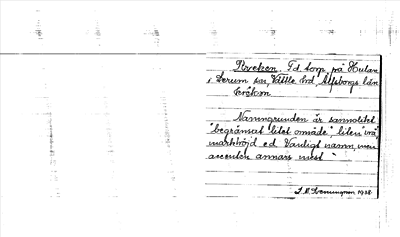 Kroken Fd. torp på Hulan
i Lerum sn, Vättle hd, Älfsborgs län
krôkən
Namngrunden är sannolikt
"begränsat litet område", liten "vrå",
markhöjd e d Vanligt namn, men
accenten annars mest `
1928